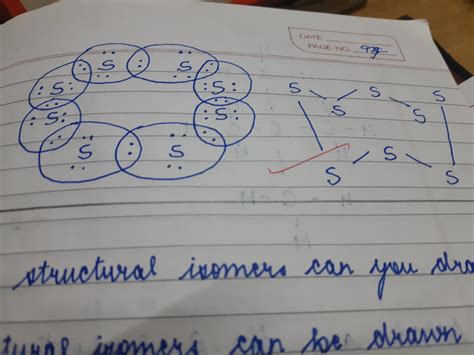 DATE
PAGE NO.
S S
S S S S S
S S
S S S S S
structural isomers can you
isomers can be drawn